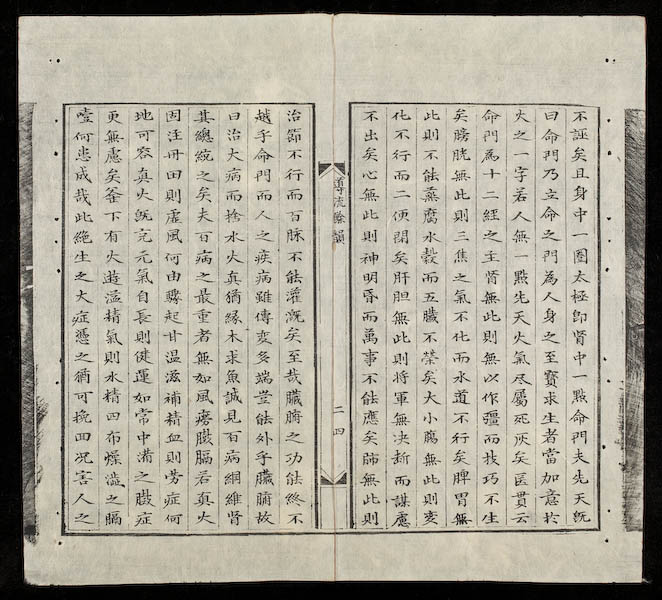 不誣矣且身中一圈太極卽腎中一㸃命門夫先天旣
曰命門乃立命之門爲人身之至寶求生者當加意於
火之一字若人無一㸃先天火氣尽屬死灰矣医貫云
命門爲十二經之主腎無此則無以作彊而技巧不生
矣膀胱無此則三焦之氣不化而水道不行矣脾胃無
此則不能蒸腐水穀而五臟不榮矣大小膓無此則变
化不行而二便閉矣肝胆無此則将軍無决斷而謀慮
不出矣心無此則神明昏而萬事不能應矣肺無此則
導流餘韻
二四
治節不行而百脉不能灌漑矣至哉臟腑之功能終不
越乎命門而人之疾病雖傳变多端豈能外乎臟腑故
曰治大病而捨水火真猶緣木求魚誠見百病綱維腎
其總統之矣夫百病之最重者無如風癆臌膈若真火
因注丹田則虛風何由驟起甘温滋補精血則劳症何
地可容真火旣充元氣自長則健運如常中滿之臌症
更無慮矣釜下有火逰溢精氣則水精四布燥澁之膈
噎何患成哉此絶生之大症憑之猶可挽回况害人之